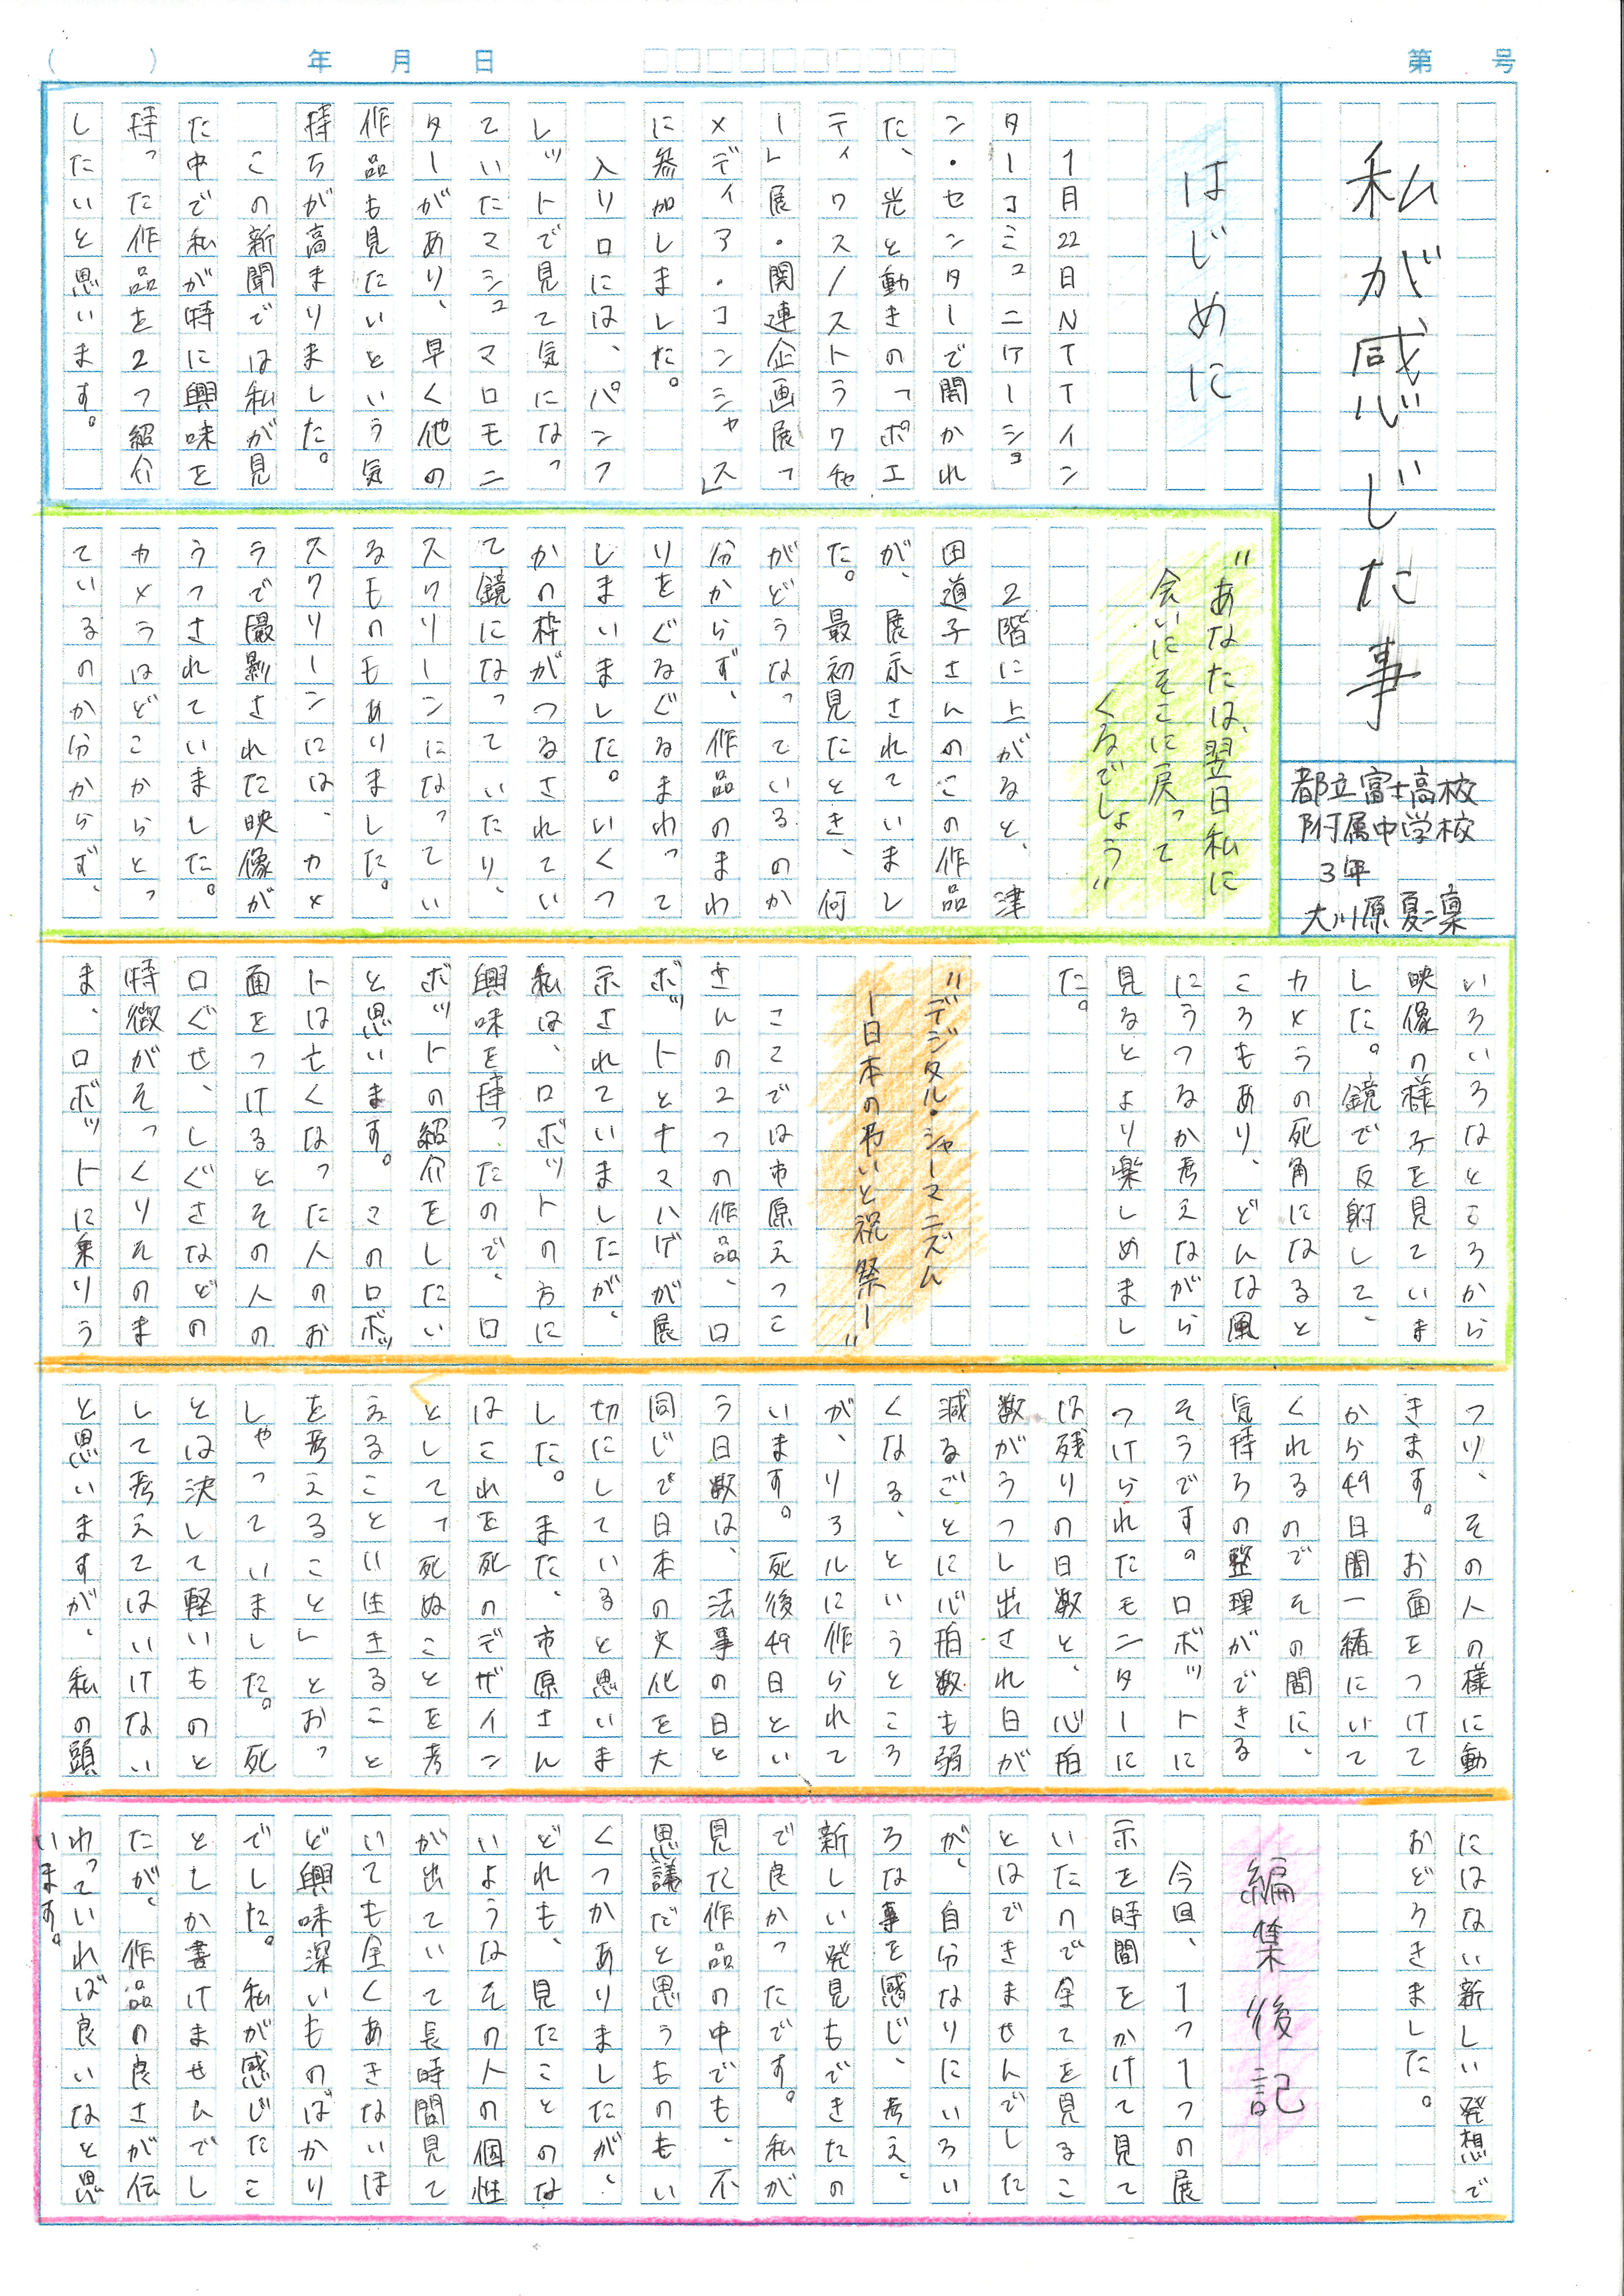 (　　) 年 月 日
第 号
私が感じた事
都立富士高校
附属中学校
3年
大川原夏凛
はじめに
1月22日NTTイン
ターコミュニケーショ
ン・センターで開かれ
た、光と動きの「ポエ
ティクス/ストラクチャ
ー」展・関連企画展「
メディア・コンシャス」
に参加しました。
入り口には、パンフ
レットで見て気になっ
ていたマシュマロモニ
ターがあり、早く他の
作品も見たいという気
持ちが高まりました。
この新聞では私が見
た中で私が特に興味を
持った作品を2つ紹介
したいと思います。
"あなたは、翌日私に
会いにそこに戻って
くるでしょう"
2階に上がると、津
田道子さんのこの作品
が、展示されていまし
た。最初見たとき、何
がどうなっているのか
分からず、作品のまわ
りをぐるぐるまわって
しまいました。いくつ
かの枠がつるされてい
て鏡になっていたり、
スクリーンになってい
るものもありました。
スクリーンには、カメ
ラで撮影された映像が
うつされていました。
カメラはどこからとっ
ているのか分からず、
いろいろなところから
映像の様子を見ていま
した。鏡で反射して、
カメラの死角になると
ころもあり、どんな風
にうつるか考えながら
見るとより楽しめまし
た。
"デジタル・シャーマニズム
ー日本の弔いと祝祭ー"
ここでは市原えつこ
さんの2つの作品、ロ
ボットとナマハゲが展
示されていましたが、
私は、ロボットの方に
興味を持ったので、ロ
ボットの紹介をしたい
と思います。このロボッ
トは亡くなった人のお
面をつけるとその人の
口ぐせ、しぐさなどの
特徴がそっくりそのま
ま、ロボットに乗りう
つり、その人の様に動
きます。お面をつけて
から49日間一緒にいて
くれるのでその間に、
気持ちの整理ができる
そうです。ロボットに
つけられたモニターに
は残りの日数と、心拍
数がうつし出され日が
減るごとに心拍数も弱
くなる、というところ
が、リアルに作られて
います。死後49日とい
う日数は、法事の日と
同じで日本の文化を大
切にしていると思いま
した。また、市原さん
はこれを死のデザイン
として「死ぬことを考
えること＝生きること
を考えること」とおっ
しゃっていました。死
とは決して軽いものと
して考えてはいけない
と思いますが、私の頭
にはない新しい発想で
おどろきました。
編集後記
今回、1つ1つの展
示を時間をかけて見て
いたので全てを見るこ
とはできませんでした
が、自分なりにいろい
ろな事を感じ、考え、
新しい発見もできたの
で良かったです。私が
見た作品の中でも、不
思議だと思うものもい
くつかありましたが、
どれも、見たことのな
いようなその人の個性
が出ていて長時間見て
いても全くあきないほ
ど興味深いものばかり
でした。私が感じたこ
としか書けませんでし
たが、作品の良さが伝
わっていれば良いなと思
います。